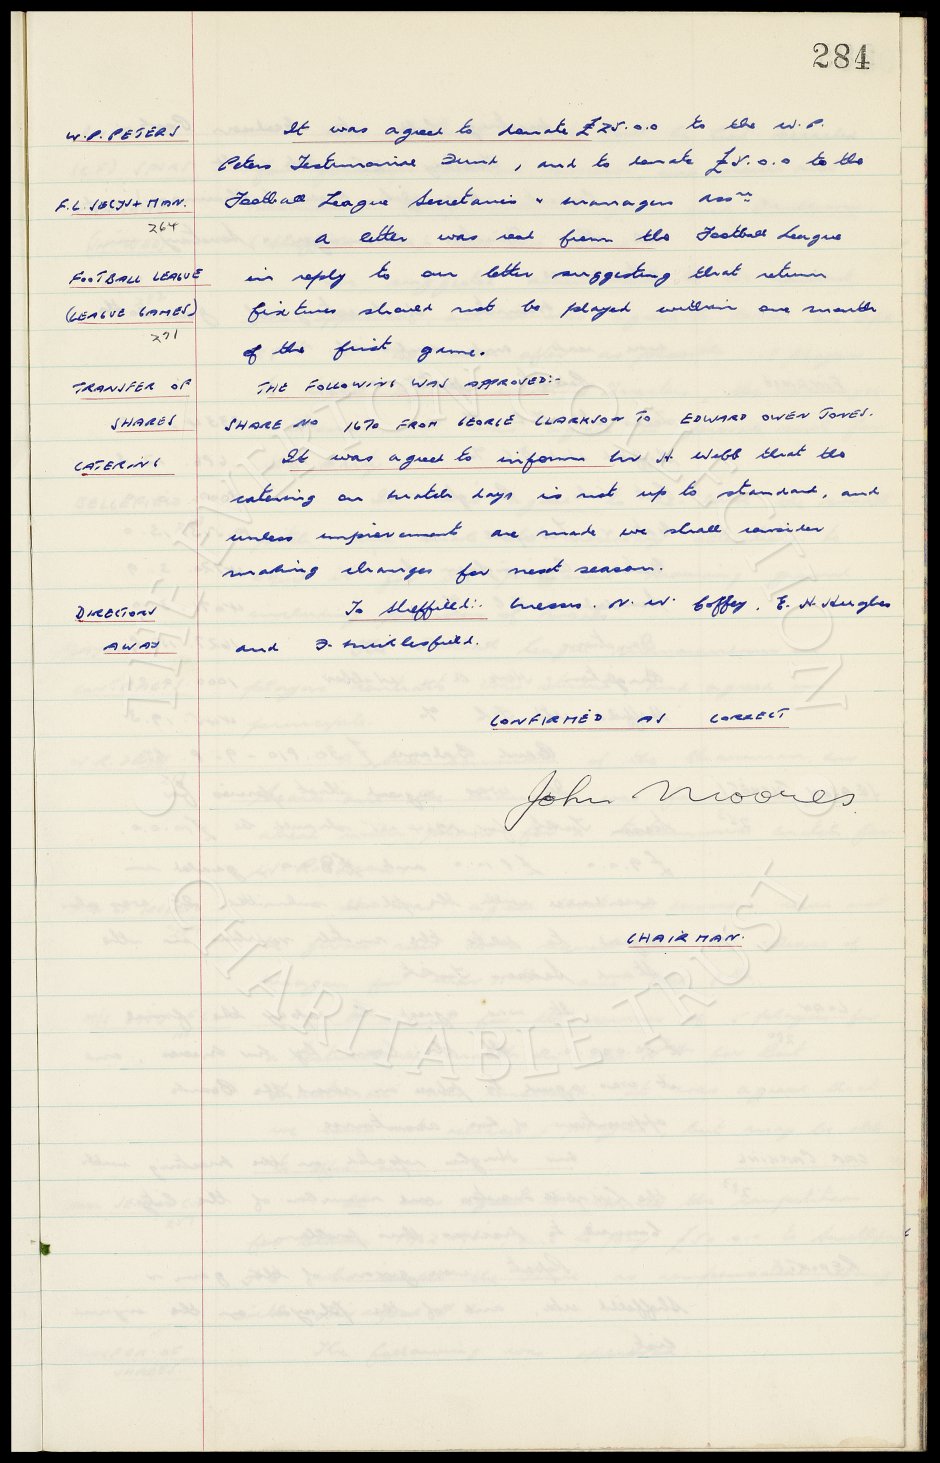 284
W.P. PETERS It was agreed to donate £25.0.0 to the W.P.
Peters Testimonial Fund, and to donate £5.0.0 to the
F.L. SECYS + MAN. Football League Secretaries & Managers Assn
264
A letter was read from the Football League
FOOTBALL LEAGUE in reply to our letter suggesting that return
(LEAGUE GAMES) fixtures should not be played within one month
271
of the first game.
TRANSFER OF THE FOLLOWING WAS APPROVED:-
SHARES SHARE NO 1670 FROM GEORGE CLARKSON TO EDWARD OWEN JONES.
CATERING It was agreed to inform Mr H. Webb that the
catering on match days is not up to standard, and
unless improvements are made we shall consider
making changes for next season.
DIRECTORS To Sheffield:- Messrs. N. W. Coffey, E. H. Hughes
AWAY and F. Micklesfield.
CONFIRMED AS CORRECT
John Moores
CHAIRMAN.
THE EVERTON COLLECTION
CHARITABLE TRUST